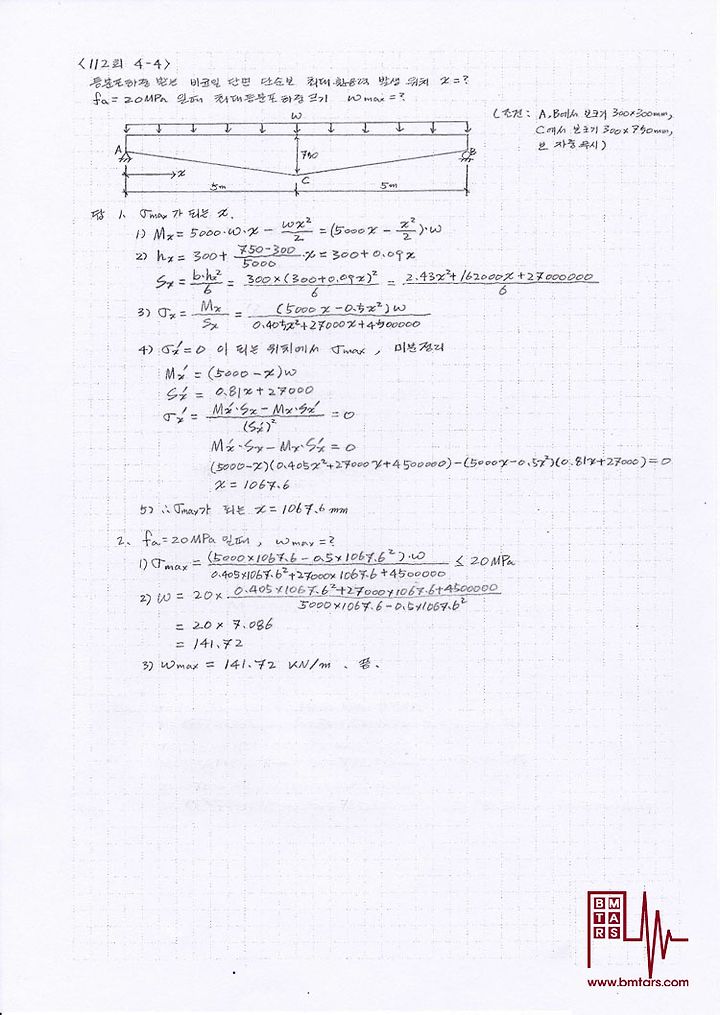 <112회 4-4>
등분포하중 받는 비균일 단면 단순보 최대휨응력 발생 위치 x=?
fa = 20MPa 일때 최대등분포하중크기 wmax=?
(조건: A,B에서 보크기 300×300mm,
C에서 보크기 300×750mm,
보 자중 무시)
w
A
750
B
x
C
5m
5m
답 1. σmax가 되는 x.
1) Mx = 5000·w·x - wx²/2 = (5000x - x²/2)·w
2) hx = 300 + (750-300)/5000·x = 300+0.09x
Sx = b·hx²/6 = 300×(300+0.09x)²/6 = 2.43x²+162000x+27000000/6
3) σx = Mx/Sx = (5000x-0.5x²)w/0.405x²+27000x+4500000
4) σx'=0 이 되는 위치에서 σmax, 미분정리
Mx' = (5000-x)w
Sx' = 0.81x+27000
σx' = Mx'·Sx-Mx·Sx'/(Sx')² = 0
Mx'·Sx-Mx·Sx' = 0
(5000-x)(0.405x²+27000x+4500000)-(5000x-0.5x²)(0.81x+27000)=0
x = 1067.6
5) ∴σmax가 되는 x = 1067.6 mm
2. fa=20MPa 일때, wmax=?
1) σmax = (5000×1067.6-0.5×1067.6²)·w/0.405×1067.6²+27000×1067.6+4500000 ≤ 20MPa
2) w = 20× 0.405×1067.6²+27000×1067.6+4500000/5000×1067.6-0.5×1067.6²
= 20 × 7.086
= 141.72
3) wmax = 141.72 KN/m. 끝.
BM
TA
RS
www.bmtars.com